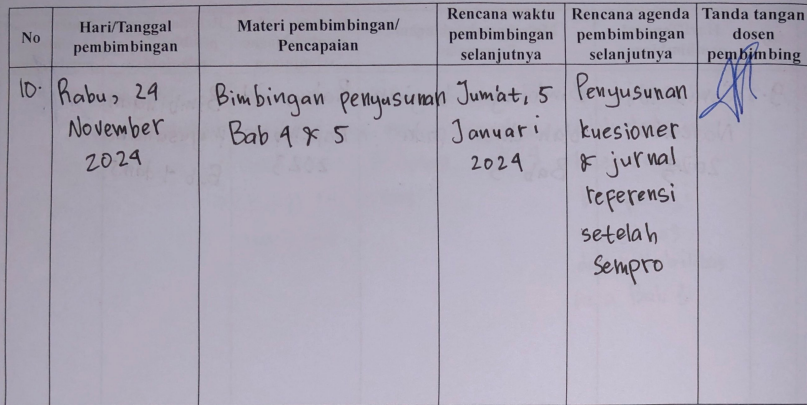 No
Hari/Tanggal
pembimbingan
Materi pembimbingan/
Pencapaian
Rencana waktu
pembimbingan
selanjutnya
Rencana agenda
pembimbingan
selanjutnya
Tanda tangan
dosen
pembimbing
10.
Rabu, 24
November
2024
Bimbingan penyusunan
Bab 4 & 5
Jum'at, 5
Januari
2024
Penyusunan
kuesioner
& jurnal
referensi
setelah
Sempro